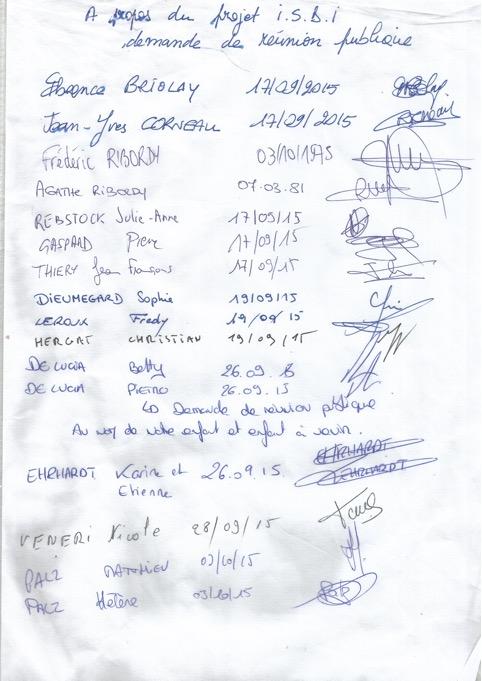 A propos du projet i.S.B.i
demande de réunion publique
Florence BRIOLAY 17/09/2015
Jean-Yves CORNEAU 17/09/2015
Frédéric RIBORDY 03/10/1975
AGATHE RIBORDY 07.03.81
REBSTOCK Julie-Anne 17/09/15
GASPARD Pierre 17/09/15
THIERY Jean François 17/09/15
DIEUMEGARD Sophie 19/09/15
LEROUX Fredy 19/09/15
HERGAT CHRISTIAN 19/09/15
DE LUCIA Betty 26.09.15
DE LUCIA PIETRO 26.09.15
Demande de réunion publique
Au nom de notre enfant et enfant à venir.
EHRHARDT Karine et 26.09.15. EHRHARDT
Etienne EHRHARDT
VENERI Nicole 28/09/15
PALZ MATTHIEU 03/10/15
PALZ Hélène 03/10/15